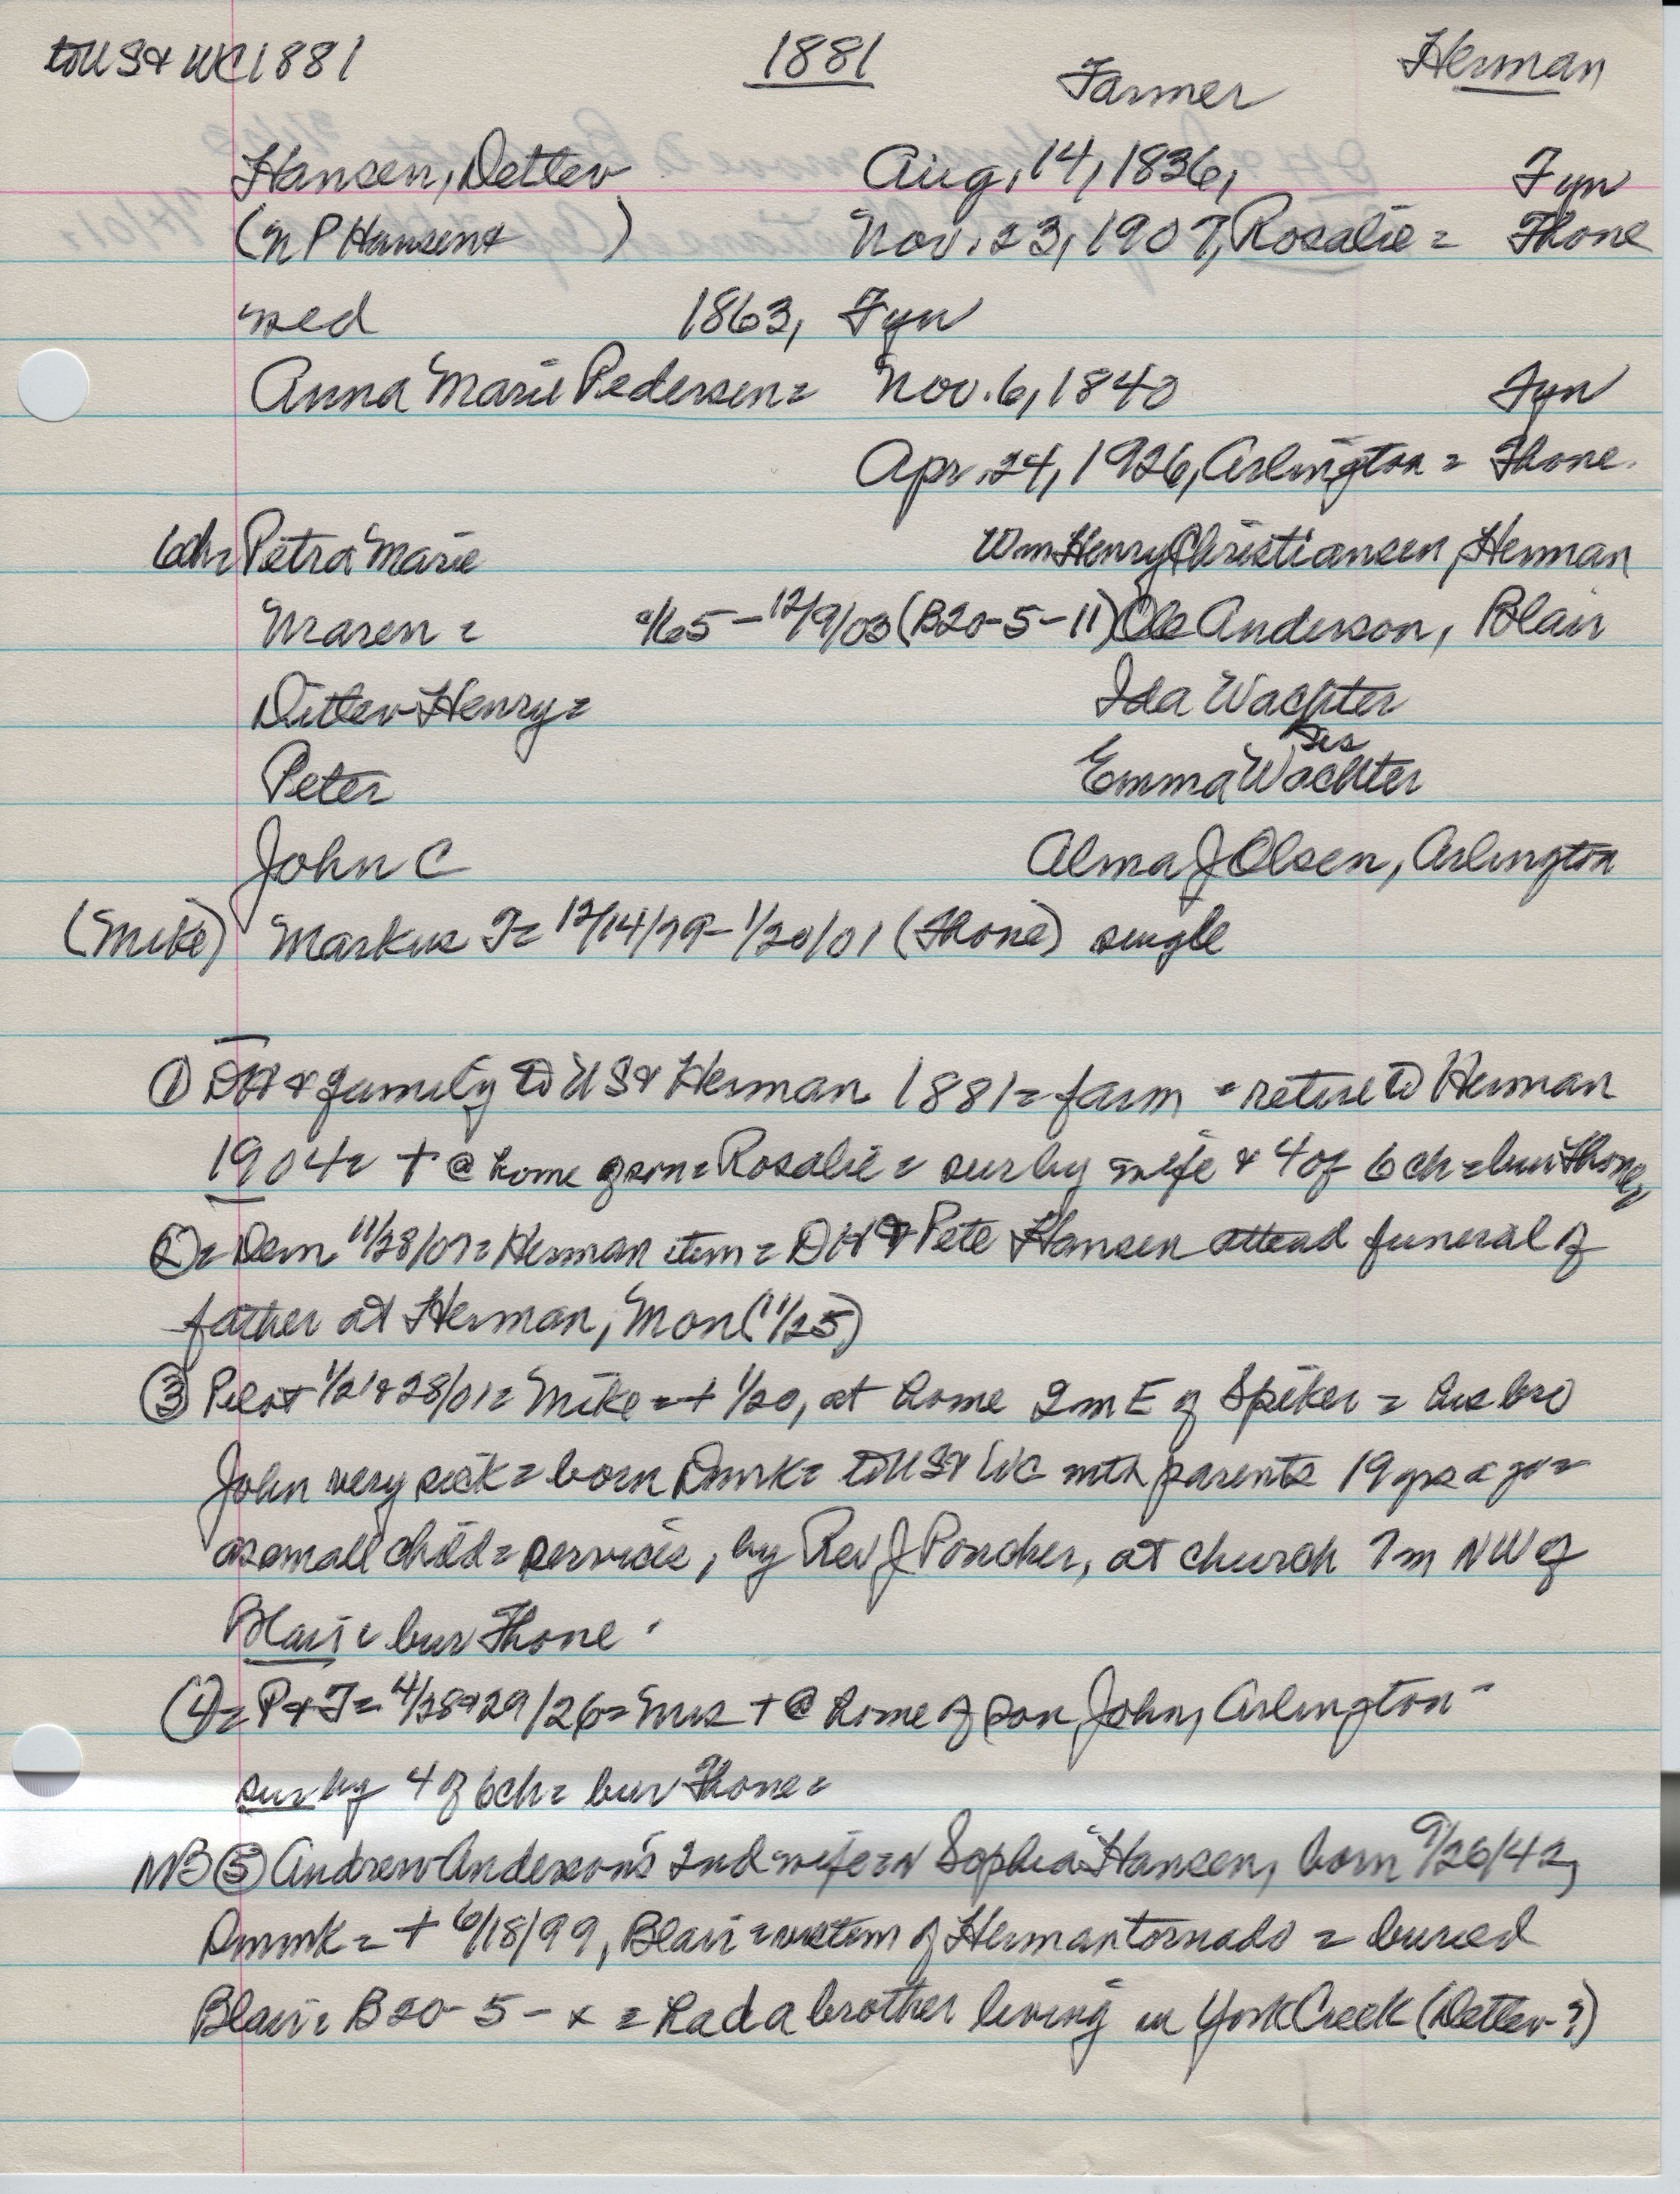 to US & WC 1881 1881 Farmer Herman
Hansen, Detlev Aug, 14, 1836, Fyn
(N P Hansen & ) Nov. 23, 1907, Rosalie = Thone
med 1863, Fyn
Anna Marie Pedersen = Nov. 6, 1840 Fyn
Apr. 24, 1926, Arlington = Thone.
6 ch = Petra Marie Wm Henry Christiansen, Herman
Maren = /65 - 12/9/03 (B20-5-11) Ole Anderson, Blair
Ditlev Henry = Ida Wachter
sis
Peter Emma Wachter
John C Alma J Olsen, Arlington
(Mike) Markus T = 12/14/79 - 1/20/01 (Thone) single
① DH & family to US & Herman 1881 = farm = retire to Herman
1904 = + @ home of son = Rosalie = sur by wife & 4 of 6 ch = bur Thone,
② = Dem 11/28/07 = Herman item = DH & Pete Hansen attend funeral of
father at Herman, Mon (11/25)
③ Pilot 1/21 & 28/01 = Mike = + 1/20, at home 2 m E of Spiker = his bro
John very sick = born Dmrk = to US & WC with parents 19 yrs ago =
as small child = services, by Rev J Poncker, at church 7 m NW of
Blair = bur Thone.
④ = P & T = 4/28 & 29/26 = Mrs + @ home of son John, Arlington =
sur by 4 of 6 ch = bur Thone =
NB ⑤ Andrew Anderson's 2nd wife = Sophia Hansen, born 9/26/42,
Dmrk = + 6/18/99, Blair = victim of Herman tornado = buried
Blair = B20-5-x = had a brother living in York Creek (Detlev?)